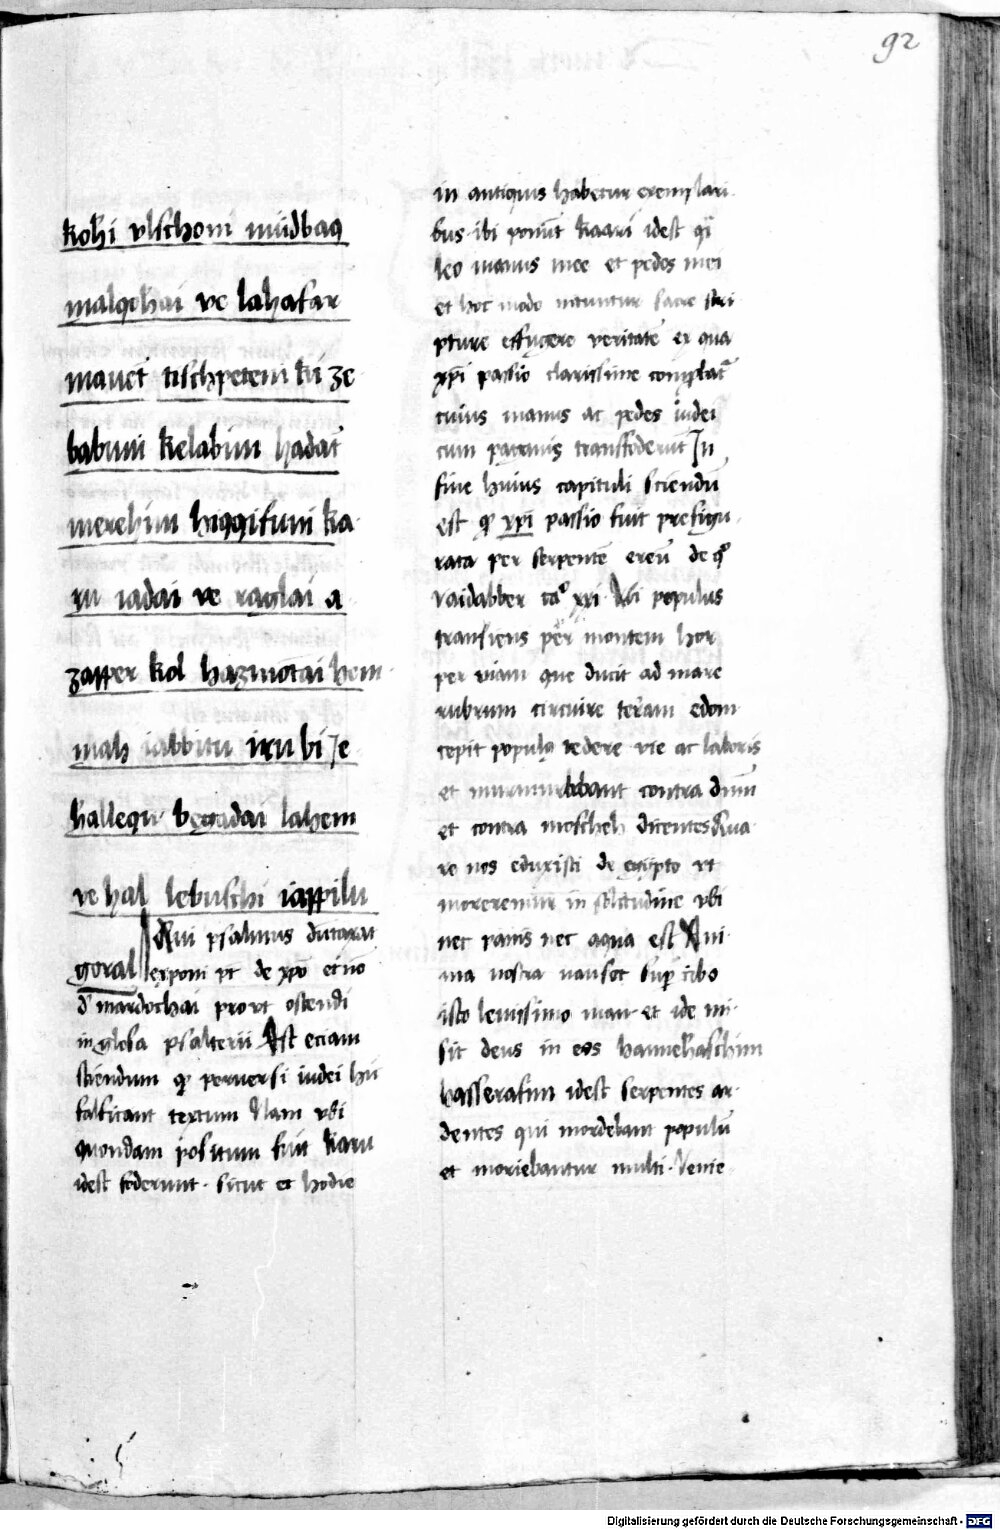 92
kohi vlschoni müdbaq
malqohai ve lahafar
mauet tischpeteni ki ze
babuni kelabim hadat
merehim higgifuni ka
ru iadai ve raglai a
zapper kol hazmotai hem
mah iabbitu iru bi Je
hallequ begadai lahem
ve hal lebuschi iappilu
goral
Qui psalmus dictarat
exponi pt de xpo et no
d' mardochai prout ostendi
in glosa psalterii Est eciam
sciendum qp peruersi iudei hic
falsicant textum Nam vbi
quondam positum fuit karu
idest foderunt. sicut et hodie
in antiquis habetur exemplari
bus ibi ponūt kaari idest qi
leo manus mee et pedes mei
et hoc modo nituntur sacre scri
pture effugere veritatē ex qua
xpi passio clarissime complat
cuius manus ac pedes iudei
cum paganis transfoderūt Jn
fine huius capituli sciendū
est qp xpi passio fuit prefigu
rata per serpentē ereū de qo
vaidabber cao xxi. Vbi populus
transiens per montem hor
per viam que ducit ad mare
rubrum circuire teram edom
cepit populū tedere vie ac laboris
et murmurabant contra dnm
et contra moscheh dicentes Qua
re nos eduxisti de egipto vt
moreremur in solitudine vbi
nec panis nec aqua est Ani
ma nostra nauset sup cibo
isto leuissimo man et ide mi
sit deus in eos hannehaschim
hasserafim idest serpentes ar
dentes qui mordebant populū
et moriebantur multi. Venie
Digitalisierung gefördert durch die Deutsche Forschungsgemeinschaft - DFG